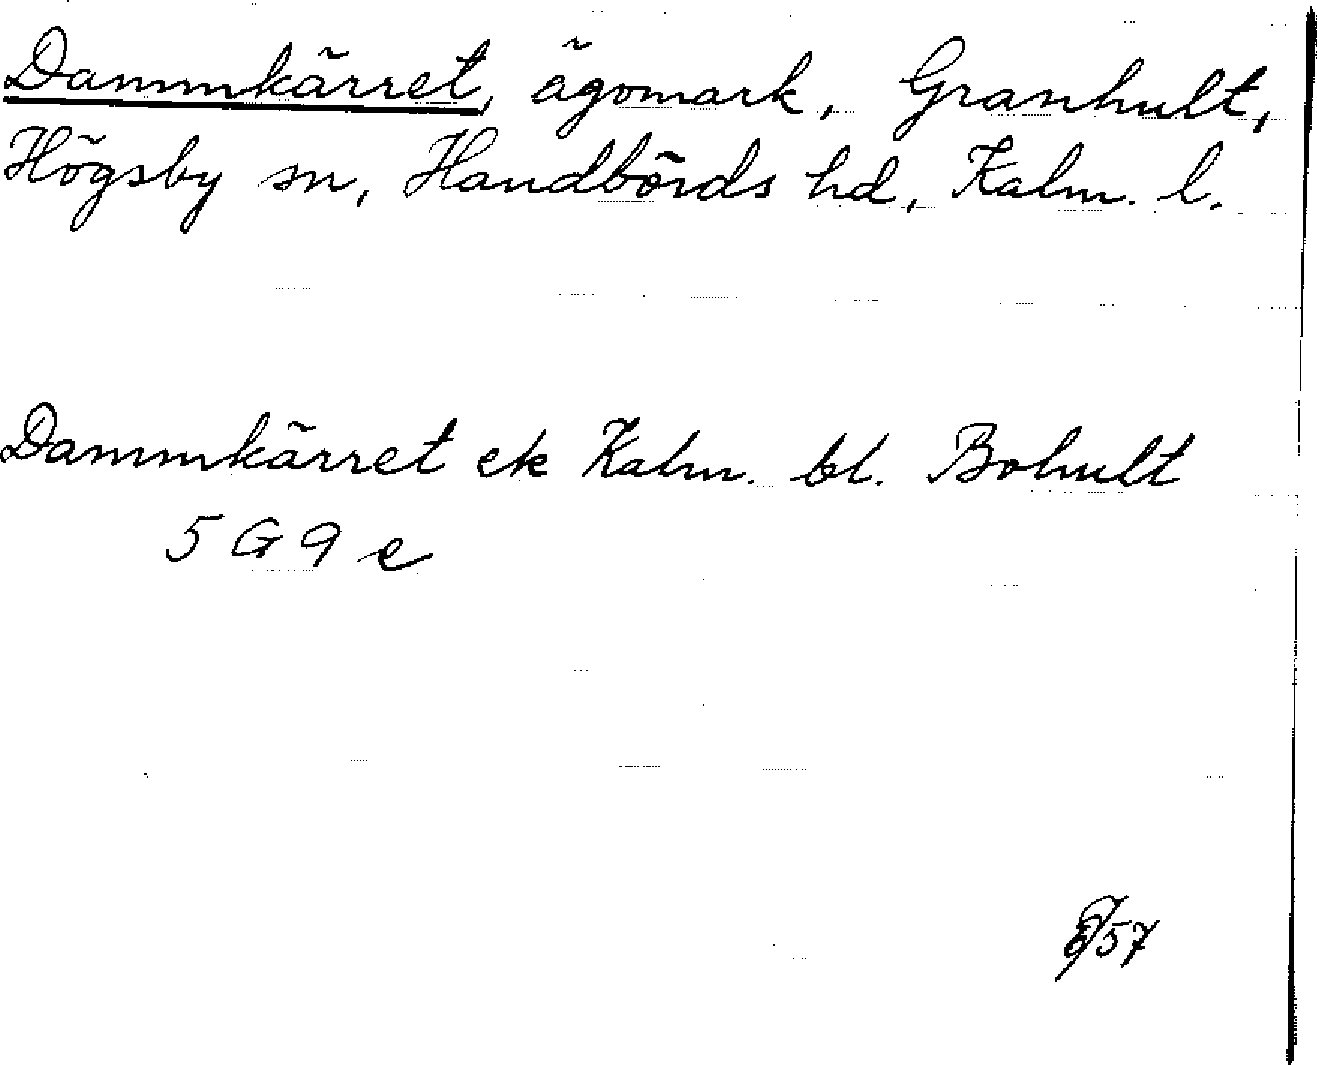 Dammkärret, ägomark, Granhult,
Högsby sn, Handbörds hd, Kalm. l.
Dammkärret ek Kalm. bl. Bohult
5 G 9 e